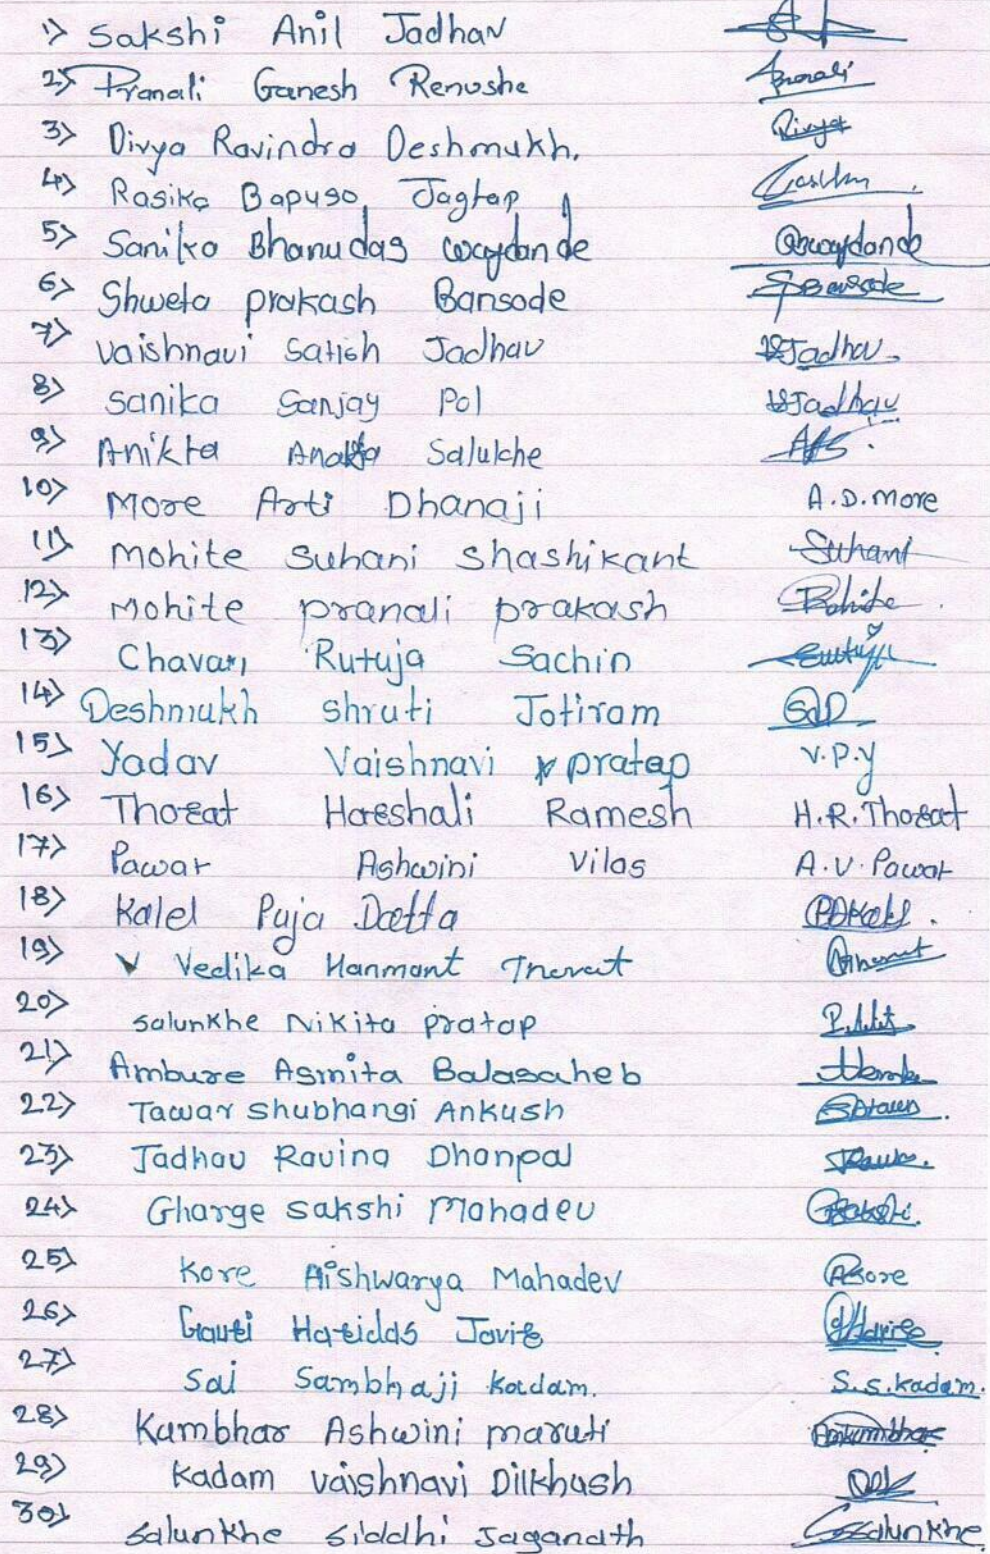 1) Sakshi Anil Jadhav
2) Pranali Ganesh Renushe Pranali
3) Divya Ravindra Deshmukh. Divya
4) Rasika Bapuso Jagtap
5) Sanika Bhanudas waydande waydande
6) Shweta prakash Bansode SPBansode
7) Vaishnavi Satish Jadhav VSJadhav.
8) Sanika Sanjay Pol VSJadhav
9) Anikta Salukhe
10) More Arti Dhanaji A.D.more
11) Mohite Suhani Shashikant Suhani
12) Mohite pranali prakash
13) Chavan Rutuja Sachin Rutuja
14) Deshmukh shruti Jotiram
15) Yadav Vaishnavi pratap V.P.Y
16) Thorat Harshali Ramesh H.R.Thorat
17) Pawar Ashwini Vilas A.V.Pawar
18) Kalel Puja Datta
19) Vedika Hanmant Thorat
20) Salunkhe Nikita pratap
21) Ambure Asmita Balasaheb
22) Tawar Shubhangi Ankush
23) Jadhav Ravina Dhanpal
24) Gharge Sakshi Mahadev
25) Kore Aishwarya Mahadev AKore
26) Gauri Haridas Javir
27) Sai Sambhaji Kadam. S.S.Kadam.
28) Kumbhar Ashwini maruti
29) Kadam Vaishnavi Dilkhush
30) Salunkhe Siddhi Jaganath Salunkhe